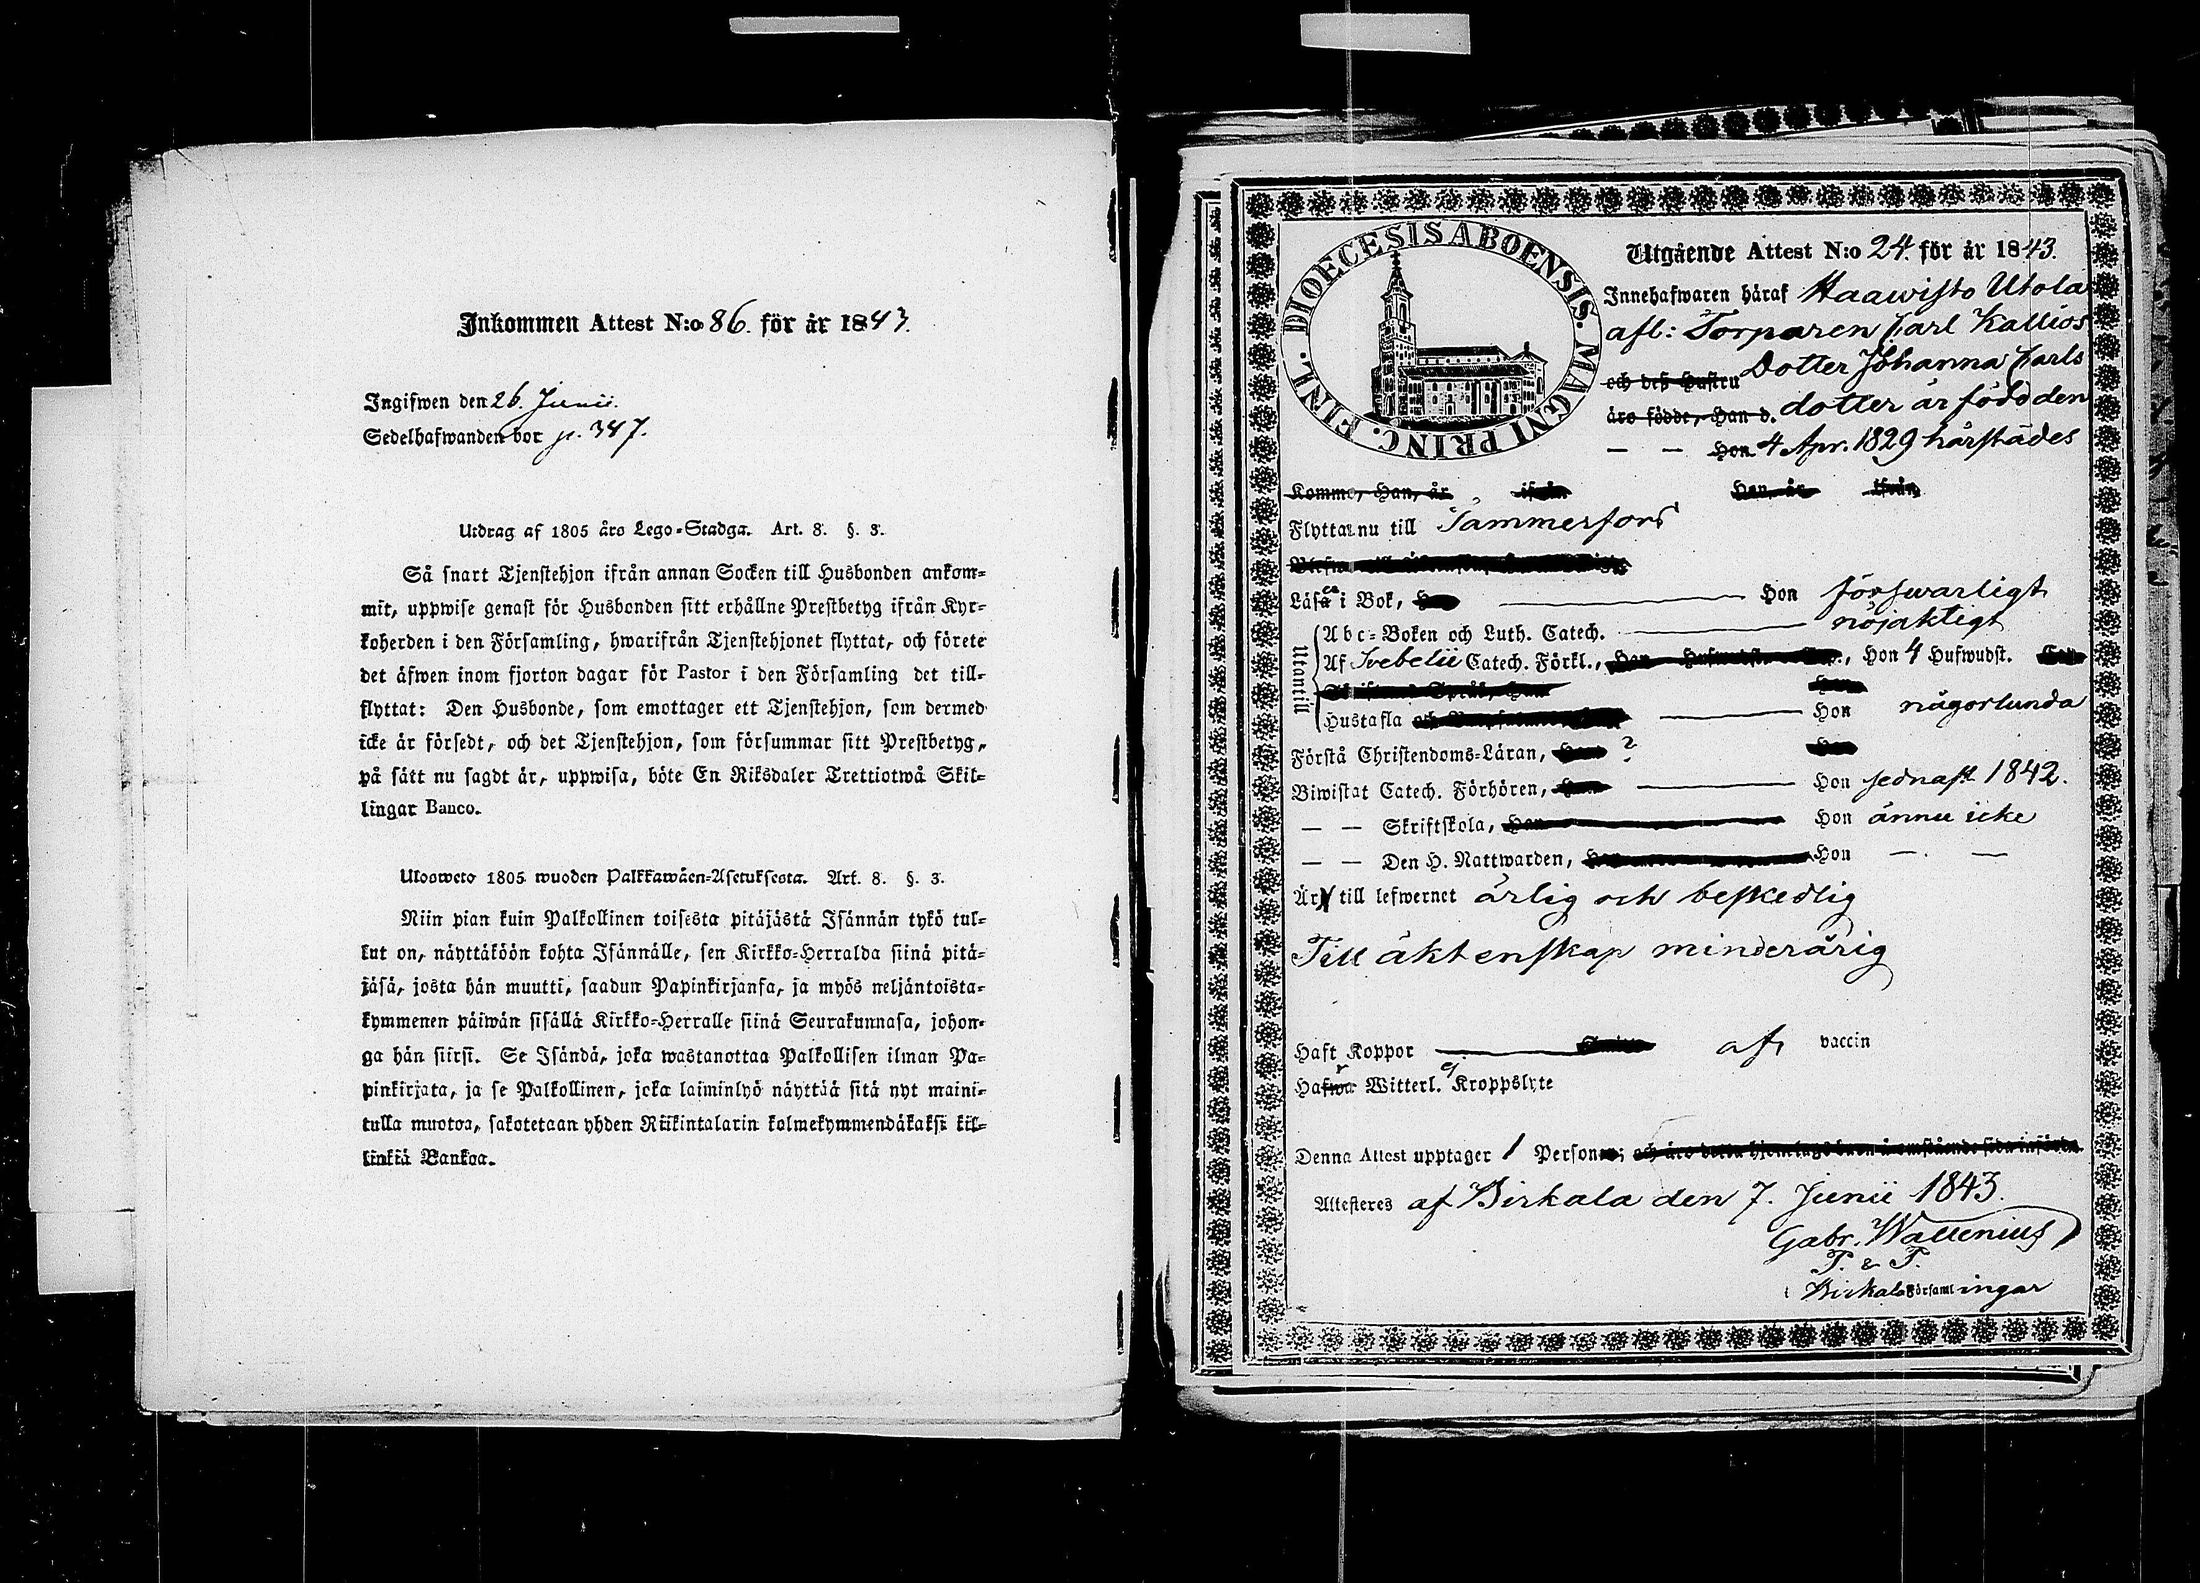 Inkommen Attest N:o 86. för år 1843.
Ingifwen den 26. Junii.
Sedelhafwanden bor p. 347.
Utdrag af 1805 års Lego-Stadga. Art. 8. §. 3.
Så snart Tjenstehjon ifrån annan Socken till Husbonden ankom-
mit, uppwise genast för Husbonden sitt erhållne Prestbetyg ifrån Kyr-
koherden i den Församling, hwarifrån Tjenstehjonet flyttat, och förete
det äfwen inom fjorton dagar för Pastor i den Församling det till-
flyttat: Den Husbonde, som emottager ett Tjenstehjon, som dermed
icke är försedt, och det Tjenstehjon, som försummar sitt Prestbetyg,
på sätt nu sagdt är, uppwisa, böte En Riksdaler Trettiotwå Skil-
lingar Banco.
Ulosweto 1805 wuoden Palkkawäen-Asetuksesta. Art. 8. §. 3.
Niin pian kuin Palkollinen toisesta pitäjästä Isännän tykö tul-
kut on, näyttäköön kohta Isännälle, sen Kirkko-Herralda siinä pitä-
jäsä, josta hän muutti, saadun Papinkirjansa, ja myös neljäntoista-
kymmenen päiwän sisällä Kirkko-Herralle siinä Seurakunnasa, johon-
ga hän siirsi. Se Isändä, joka wastanottaa Palkollisen ilman Pa-
pinkirjata, ja se Palkollinen, joka laiminlyö näyttää sitä nyt maini-
tulla muotoa, sakotetaan yhden Riikintalarin kolmekymmendäkaksi kil-
linkiä Bankoa.
DIOECESIS ABOENSIS. MAGNI PRINC. FINL.
Utgående Attest N:o 24. för år 1843.
Innehafwaren häraf Haawisto Utola
afl: Torparen Carl Kallios
och deß Hustru Dotter Johanna Carls
äro födde, Han d. dotter är född den
— — Hon 4 Apr. 1829 härstädes
Kommo, Han, år ifrån Hon, år ifrån
Flyttar nu till Tammerfors
Läsa i Bok, Han — Hon förswarligt
Utantill
Abc-Boken och Luth. Catech. — nöjaktigt
Af Svebelii Catech. Förkl., Hon 4 Hufwudst.
Hustafla — Hon någorlunda
Förstå Christendoms-Läran, ?
Biwistat Catech. Förhören, — Hon sednast 1842.
— — Skriftskola, Hon ännu icke
— — Den H. Nattwarden, Hon — . —
Är till lefwernet ärlig och beskedlig
Till äktenskap minderårig
Haft Koppor — af vaccin
Har Witterl. ej Kroppslyte
Denna Attest upptager 1 Person; och äro detta hjemlags barn å omstående sida införde.
Attesteres af Birkala den 7. Junii 1843.
Gabr. Wallenius
P. & P.
i Birkala Församlingar